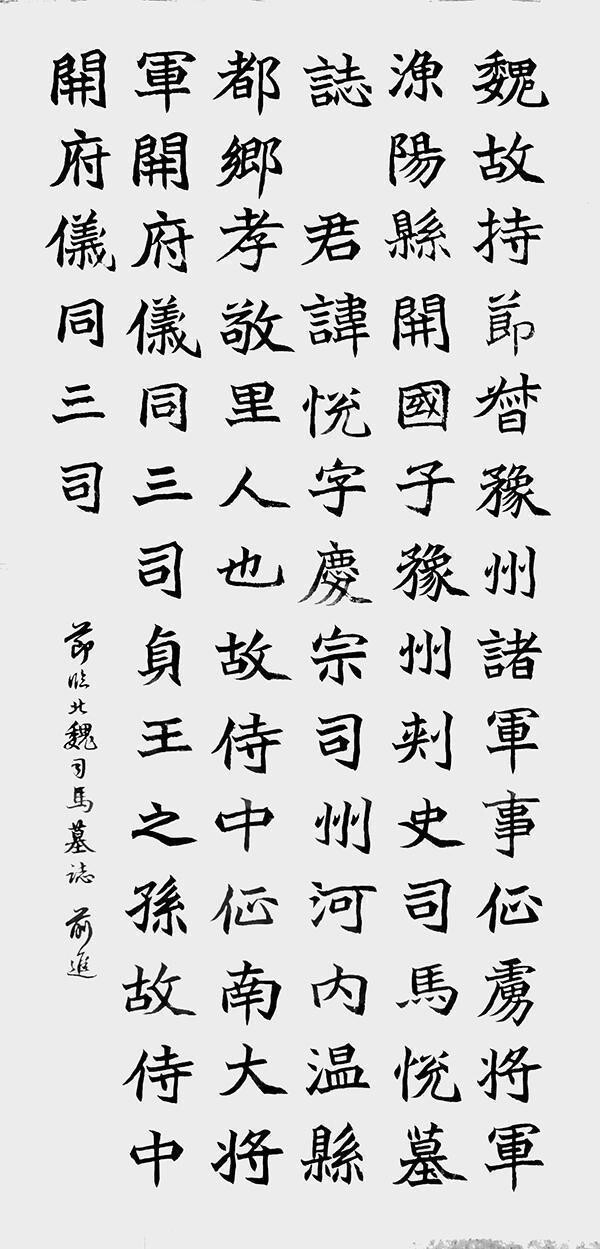 魏故持節督豫州諸軍事征虜將軍
漁陽縣開國子豫州刺史司馬悅墓
誌 君諱悅字慶宗司州河內溫縣
都鄉孝敬里人也故侍中征南大將
軍開府儀同三司貞王之孫故侍中
開府儀同三司
節臨北魏司馬墓誌 前進